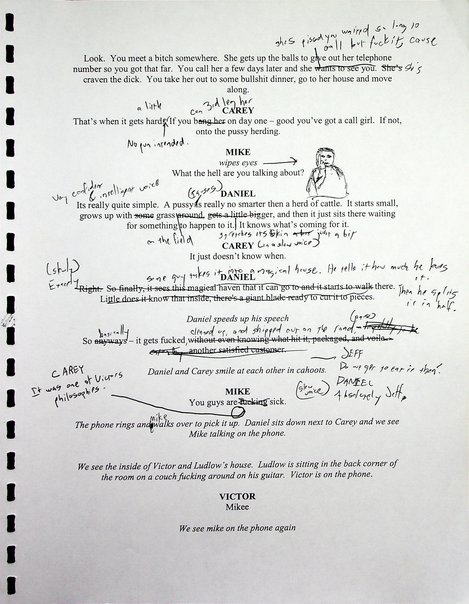 she's pissed you waited so long to
call but fuck it, cause
Look. You meet a bitch somewhere. She gets up the balls to give out her telephone
number so you got that far. You call her a few days later and she wants to see you. She's she's
craven the dick. You take her out to some bullshit dinner, go to her house and move
along.
a little can 3rd leg her
CAREY
That's when it gets hard. If you bang her on day one – good you've got a call girl. If not,
onto the pussy herding.
No pun intended.
MIKE
wipes eyes
What the hell are you talking about?
very confident
& intelligent voice
DANIEL
Its really quite simple. A pussy is really no smarter then a herd of cattle. It starts small,
grows up with some grass around, gets a little bigger, and then it just sits there waiting
for something to happen to it. It knows what's coming for it.
on the field
stretches its skin just a bit
CAREY (in a slow voice)
It just doesn't know when.
DANIEL
Exactly
some guy takes it into a magical house. He tells it how much he loves
it.
Right. So finally, it sees this magical haven that it can go to and it starts to walk there.
Then he splits
it in half.
Little does it know that inside, there's a giant blade ready to cut it to pieces.
Daniel speeds up his speech
basically
cleaned up, and shipped out on the
So anyways – it gets fucked without even knowing what hit it, packaged, and voila –
another satisfied customer.
JEFF
Daniel and Carey smile at each other in cahoots.
CAREY
It was one of Victor's
philosophies.
DANIEL
Absolutely Jeff.
(slow
voice)
MIKE
You guys are fucking sick.
mike
The phone rings and walks over to pick it up. Daniel sits down next to Carey and we see
Mike talking on the phone.
We see the inside of Victor and Ludlow's house. Ludlow is sitting in the back corner of
the room on a couch fucking around on his guitar. Victor is on the phone.
VICTOR
Mikee
We see mike on the phone again